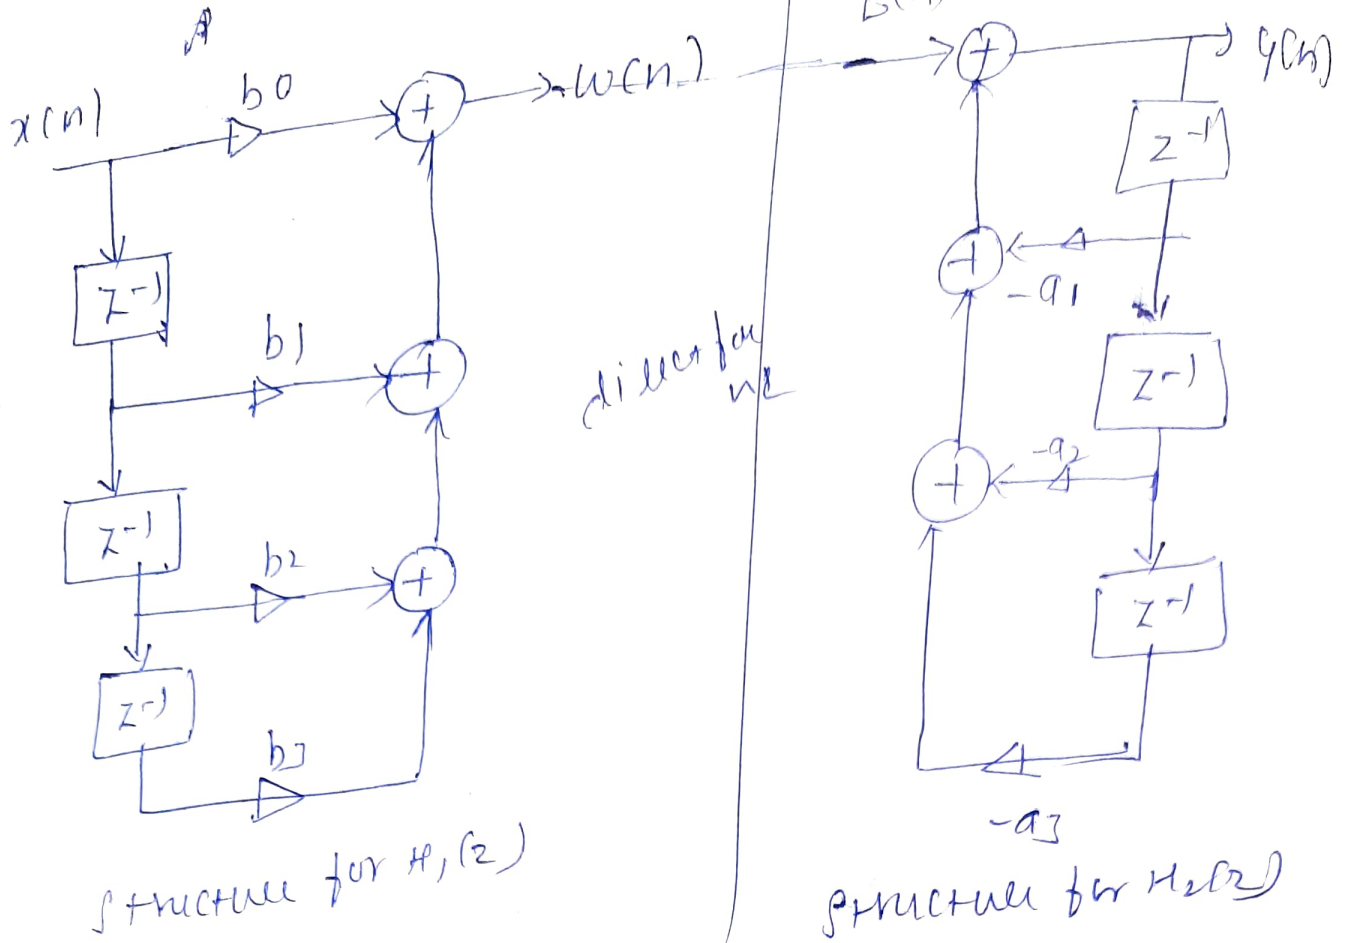 A
x(n)
b0
w(n)
z-1
b1
z-1
b2
z-1
b3
structure for H1(z)
direct for
y(n)
z-1
-a1
z-1
-a2
z-1
-a3
structure for H2(z)